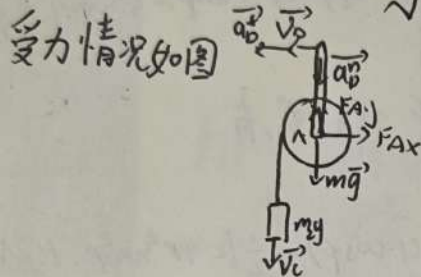 受力情况如图
a_D^t V_D
a_D^n
FAy
A FAx
mg
m₂g
Vc